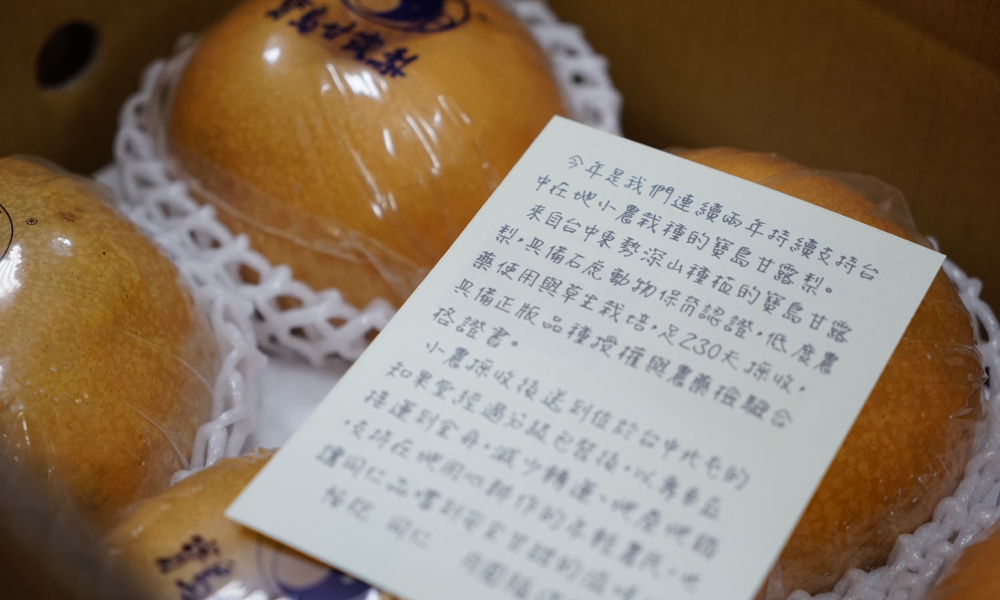 寶島甘露梨
®
今年是我們連續兩年持續支持台
中在地小農栽種的寶島甘露梨。
來自台中東勢深山種植的寶島甘露
梨,具備石虎動物保育認證,低度農
藥使用與草生栽培,足230天採收,
具備正版品種授權與農藥檢驗合
格證書。
小農採收後送到位於台中北屯的
知果堂經過分級包裝後,以專車直
接運到全舟,減少轉運、地產地銷
,支持在地用心耕作的年輕農民,也
讓同仁品嚐到安全甘甜的滋味
祝 同仁 月圓